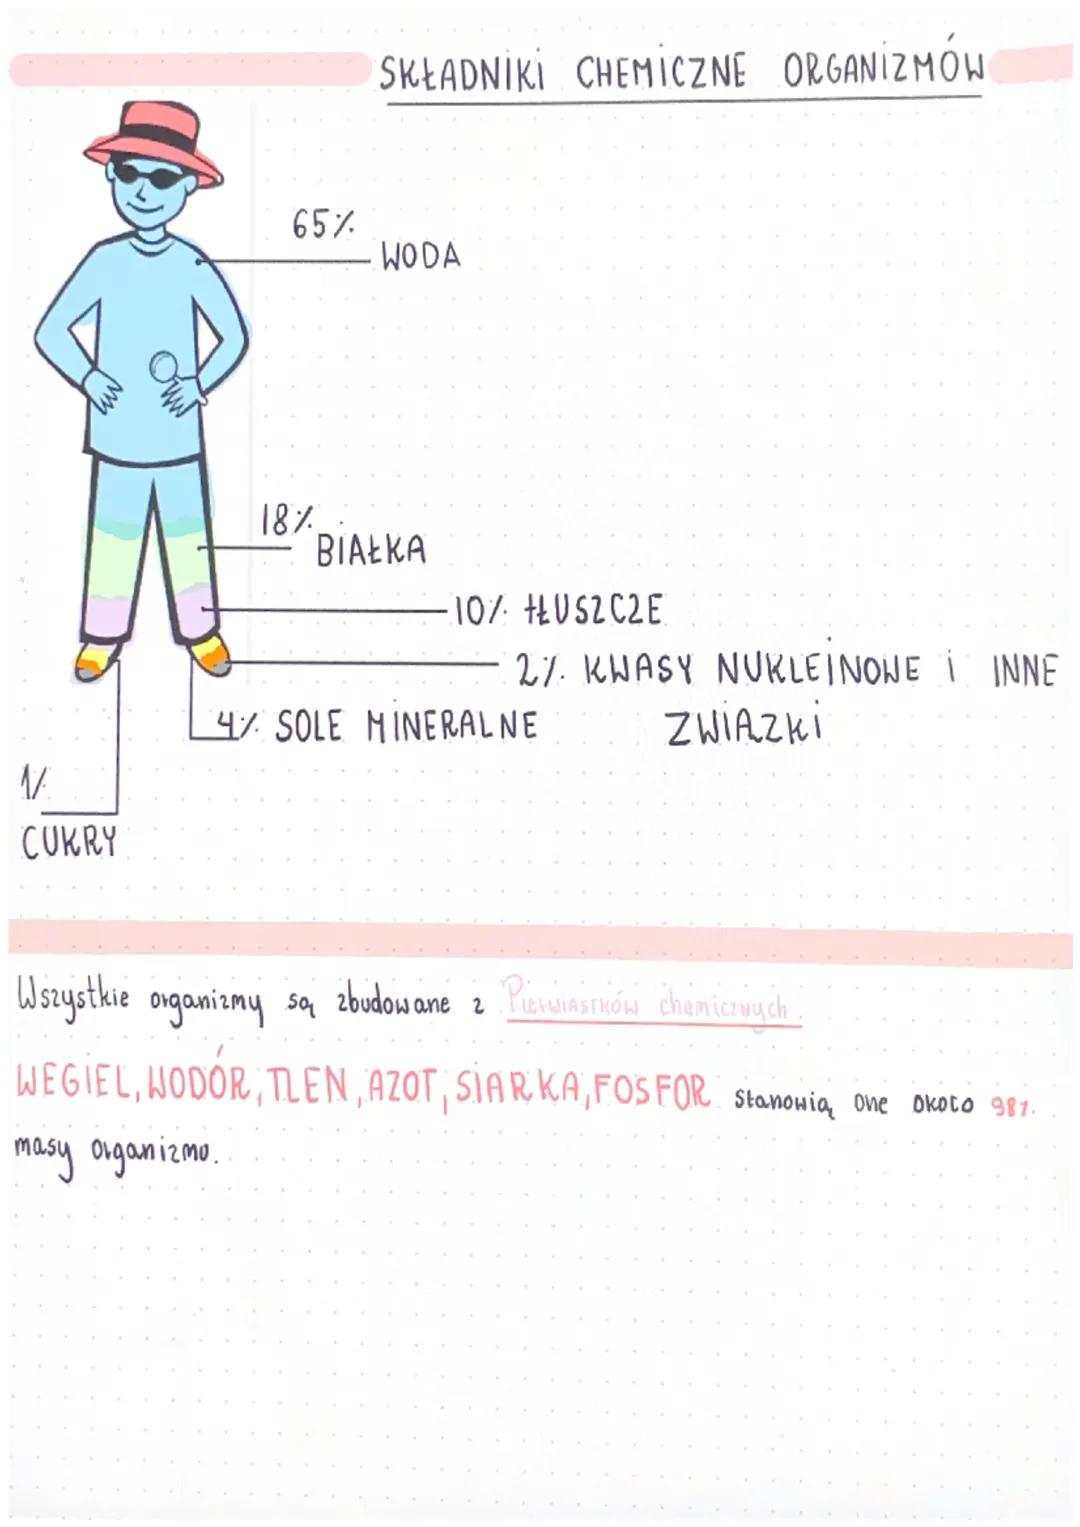 SKŁADNIKI CHEMICZNE ORGANIZMÓW
65%
WODA
18%
BIAŁKA
10% TŁUSZCZE
2% KWASY NUKLEINOWE i INNE
ZWIĄZKI
4% SOLE MINERALNE
1%
CUKRY
Wszystkie organizmy są zbudowane z Pierwiastków chemicznych.
WĘGIEL, WODÓR, TLEN, AZOT, SIARKA, FOSFOR Stanowią one około 98%
masy organizmu.